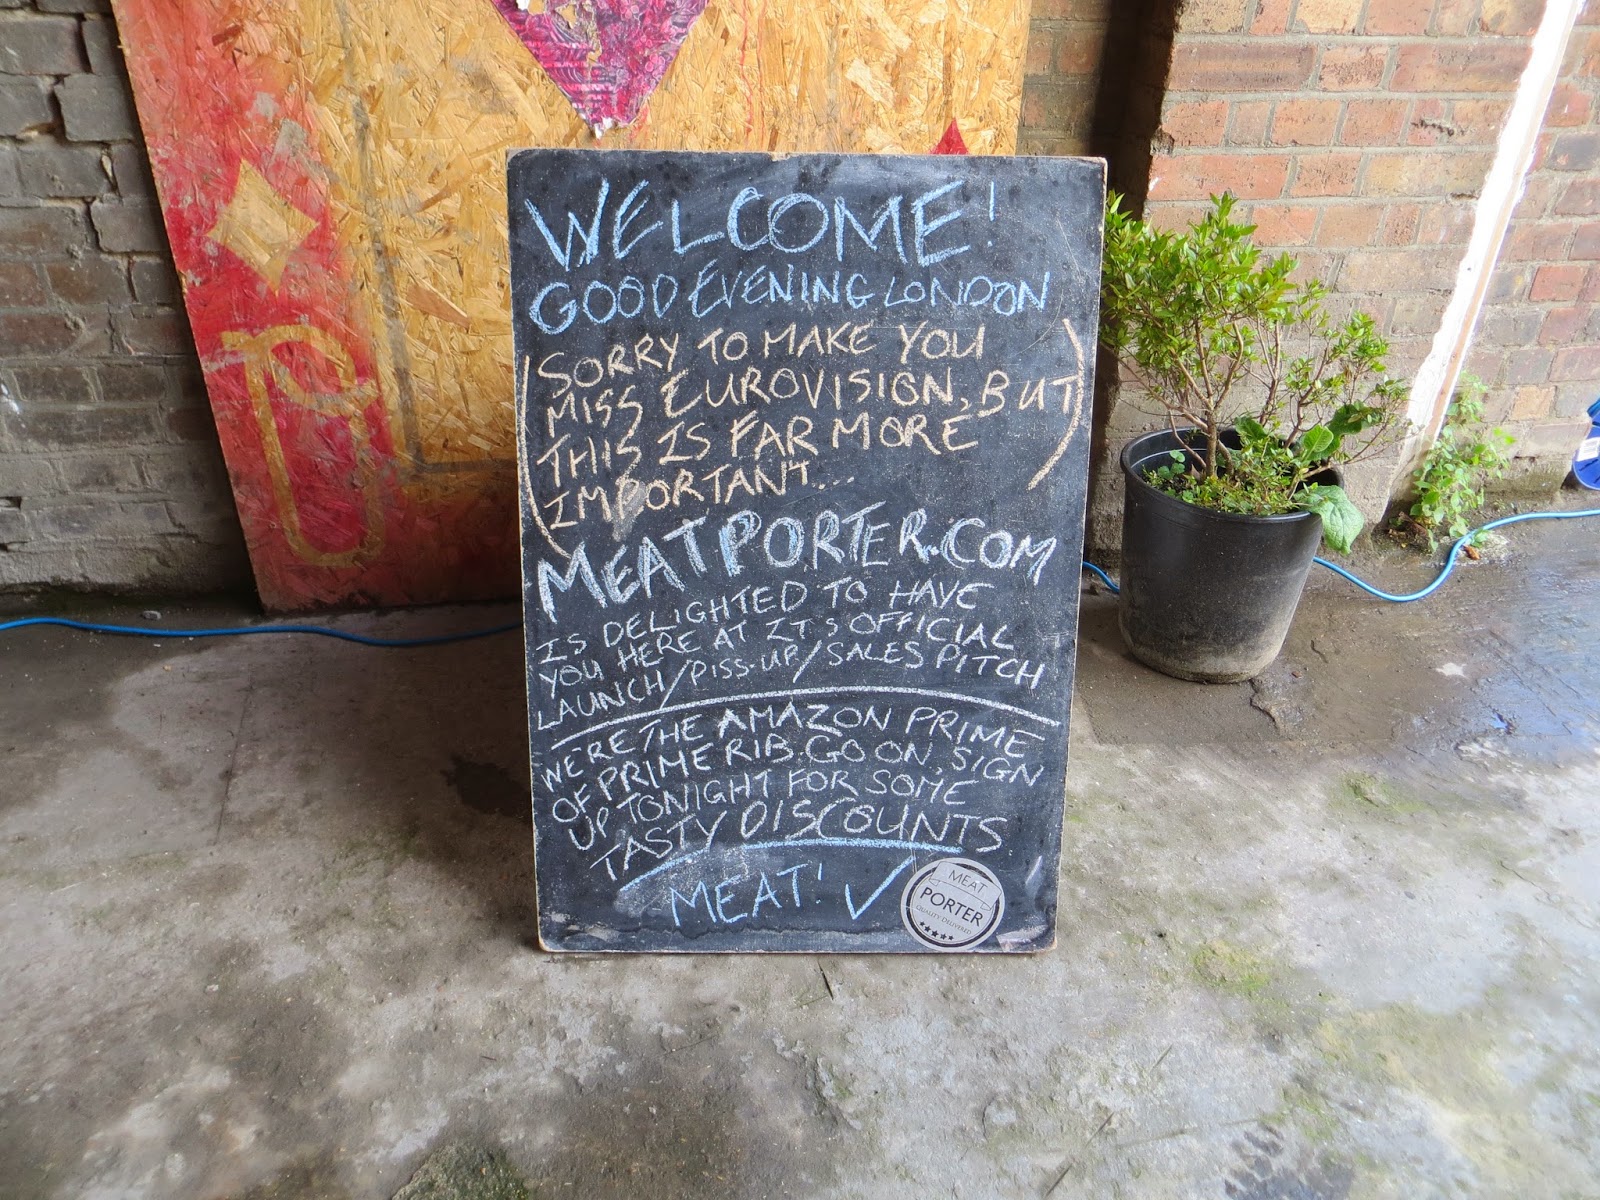 WELCOME!
GOOD EVENING LONDON
(SORRY TO MAKE YOU
MISS EUROVISION, BUT
THIS IS FAR MORE
IMPORTANT...)
MEATPORTER.COM
IS DELIGHTED TO HAVE
YOU HERE AT IT'S OFFICIAL
LAUNCH/PISS-UP/SALES PITCH
WE'RE THE AMAZON PRIME
OF PRIME RIB. GO ON SIGN
UP TONIGHT FOR SOME
TASTY DISCOUNTS
MEAT! ✓
MEAT
PORTER
QUALITY DELIVERED